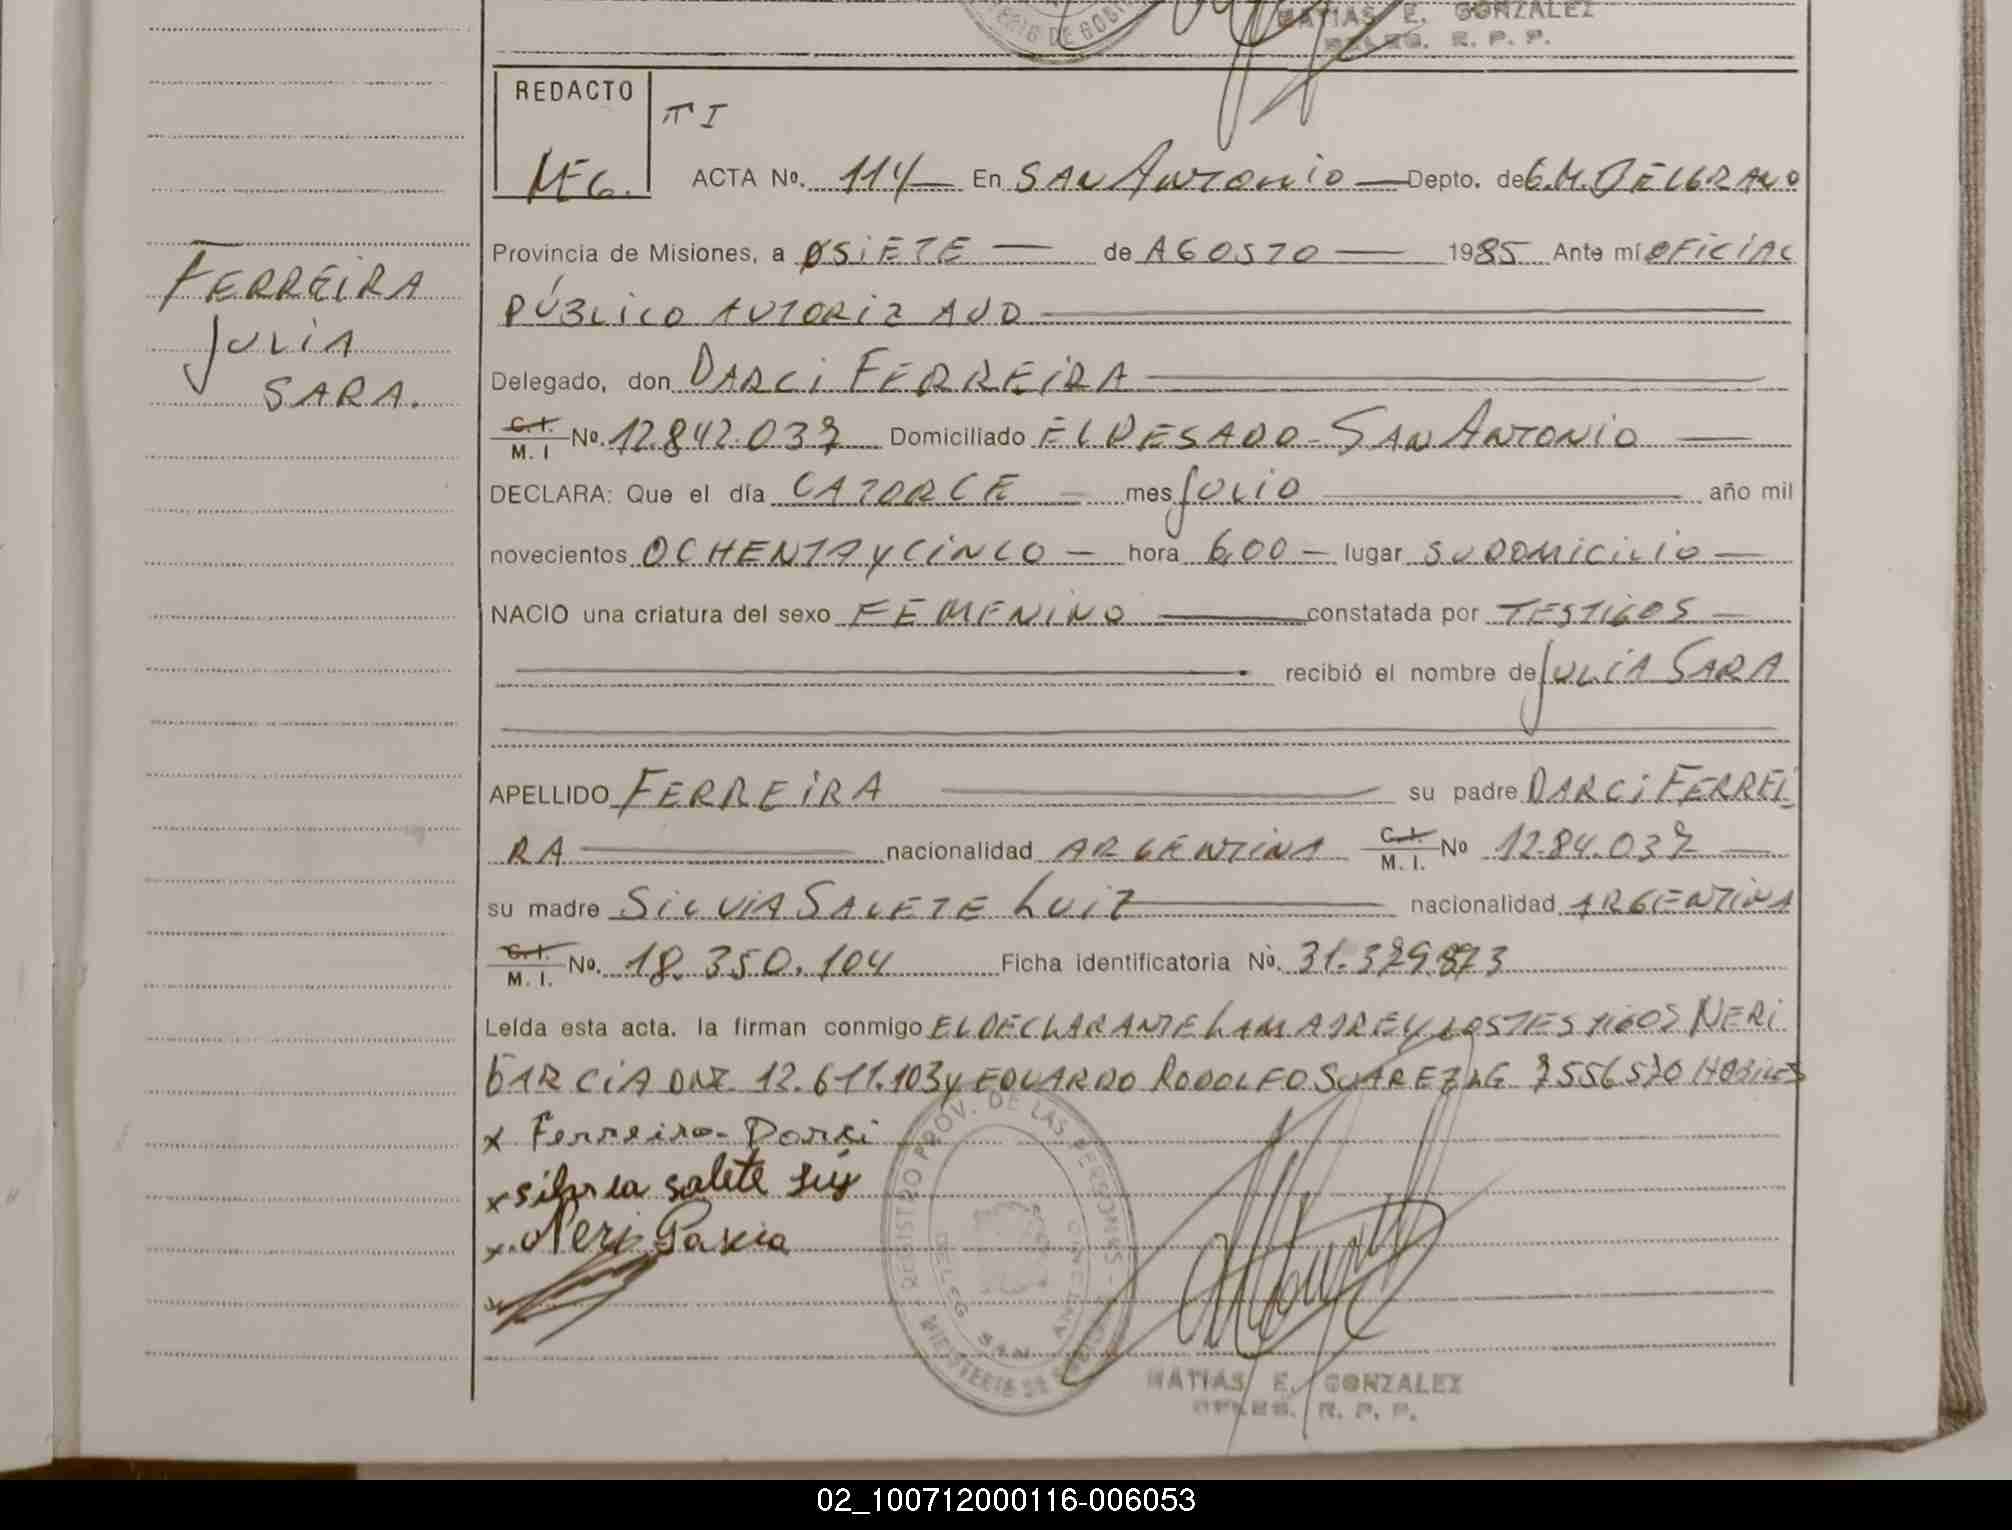 MATIAS E. GONZALEZ
DELEG. R. P. P.
REDACTO
TI
MEG.
ACTA Nº. 114 — En SAN ANTONIO — Depto. de G.M. BELGRANO
Provincia de Misiones, a SIETE — de AGOSTO — 1985 Ante mí OFICIAL
PÚBLICO AUTORIZADO
FERREIRA
JULIA
SARA.
Delegado, don DARCI FERREIRA
C.I. M. I Nº. 12.842.037 Domiciliado EL DESADO - SAN ANTONIO —
DECLARA: Que el día CATORCE — mes JULIO — año mil
novecientos OCHENTA y CINCO — hora 6,00 — lugar SU DOMICILIO —
NACIO una criatura del sexo FEMENINO — constatada por TESTIGOS —
recibió el nombre de JULIA SARA
APELLIDO FERREIRA — su padre DARCI FERREI
RA — nacionalidad ARGENTINA C.I. M. I. Nº 12.84.037 —
su madre SILVIA SALETE LUIZ — nacionalidad ARGENTINA
C.I. M. I. Nº. 18.350.104 Ficha identificatoria Nº. 31.379.873
Leída esta acta, la firman conmigo EL DECLARANTE LA MADRE y LOS TESTIGOS NERI
GARCIA DNI 12.611.103 y EDUARDO RODOLFO SUAREZ 7556570 HABILES
x Ferreira - Darci
x silvia salete luiz
x. Neri Garcia
REGISTRO PROV. DE LAS PERSONAS - MINISTERIO DE GOBIERNO
DELEG SAN ANTONIO
MATIAS E. GONZALEZ
DELEG. R. P. P.
02_100712000116-006053